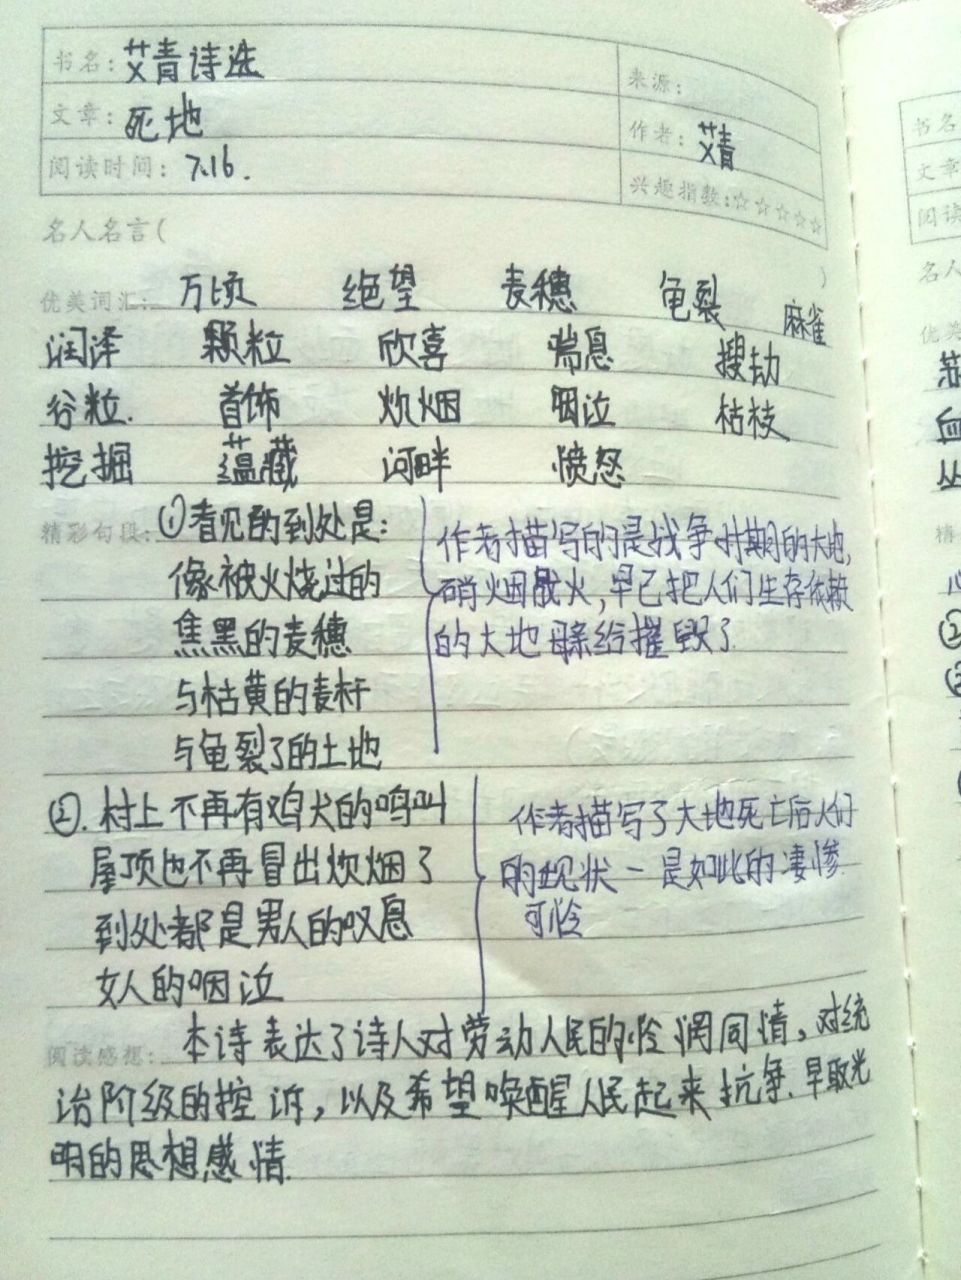 书名：艾青诗选
来源：
文章：死地
作者：艾青
阅读时间：7.16.
兴趣指数：☆☆☆☆☆
名人名言（
）
优美词汇： 万顷 绝望 麦穗 龟裂 麻雀
润泽 颗粒 欣喜 喘息 搜劫
谷粒. 首饰 炊烟 咽泣 枯枝
挖掘 蕴藏 河畔 愤怒
精彩句段：①看见的到处是：
像被火烧过的
焦黑的麦穗
与枯黄的麦杆
与龟裂了的土地
作者描写的是战争时期的大地,
硝烟战火,早已把人们生存依赖
的大地母亲给摧毁了.
②.村上不再有鸡犬的鸣叫
屋顶也不再冒出炊烟了
到处都是男人的叹息
女人的咽泣
作者描写了大地死亡后人们
的现状－是如此的凄惨
可怜
阅读感想： 本诗表达了诗人对劳动人民的怜悯同情，对统
治阶级的控诉，以及希望唤醒人民起来抗争.早取光
明的思想感情.
书名
文章
阅读
名人
优美
精